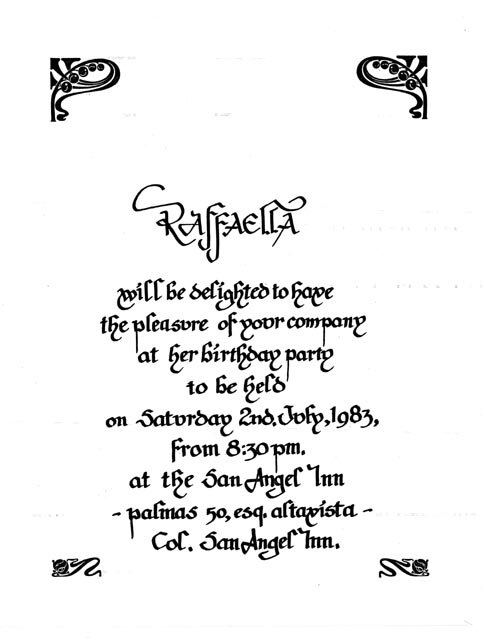 Raffaella
will be delighted to have
the pleasure of your company
at her birthday party
to be held
on Saturday 2nd. July, 1983,
from 8:30 pm.
at the San Angel Inn
- palmas 50, esq. altavista -
Col. San Angel Inn.